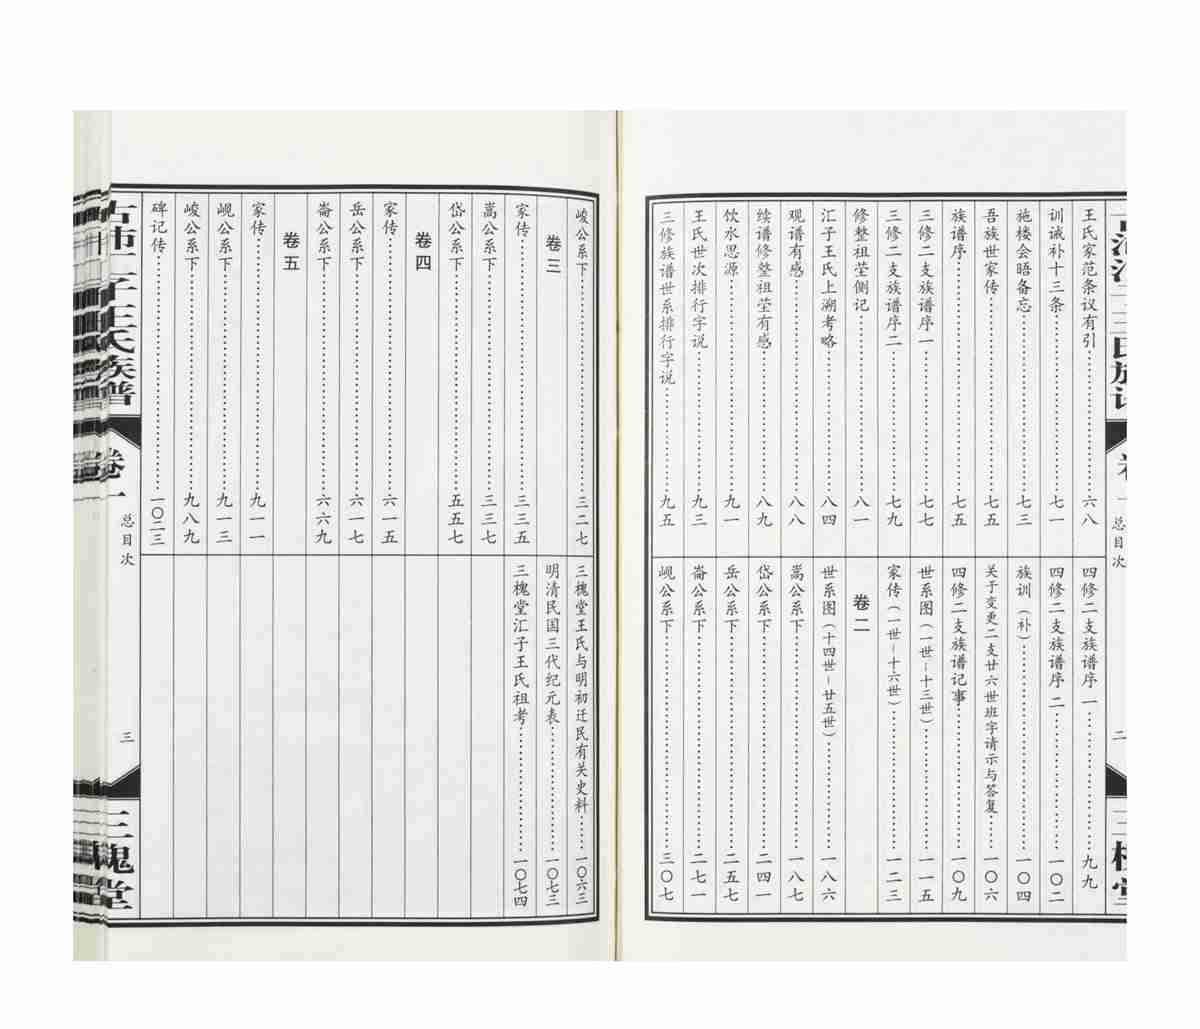 王氏家范条议有引……六八
训诫补十三条……七一
施楼会晤备忘……七三
吾族世家传……七五
族谱序……七五
三修二支族谱序一……七七
三修二支族谱序二……七九
修整祖茔侧记……八一
汇子王氏上溯考略……八四
观谱有感……八八
续谱修整祖茔有感……八九
饮水思源……九一
王氏世次排行字说……九三
三修族谱世系排行字说……九五
四修二支族谱序一……九九
四修二支族谱序二……一〇二
族训（补）……一〇四
关于变更二支廿六世班字请示与答复……一〇六
四修二支族谱记事……一〇九
世系图（一世－十三世）……一一五
家传（一世－十六世）……一二三
卷二
世系图（十四世－廿五世）……一八六
嵩公系下……一八七
岱公系下……二四一
岳公系下……二五七
崙公系下……二七一
岘公系下……三〇七
总目次
二
峻公系下……三二七
卷三
家传……三三五
嵩公系下……三三七
岱公系下……五五七
卷四
家传……六一五
岳公系下……六一七
崙公系下……六六九
卷五
家传……九一一
岘公系下……九一三
峻公系下……九八九
碑记传……一〇二三
三槐堂王氏与明初迁民有关史料……一〇六三
明清民国三代纪元表……一〇七三
三槐堂汇子王氏祖考……一〇七四
子王氏族谱
卷一
总目次
三
三槐堂